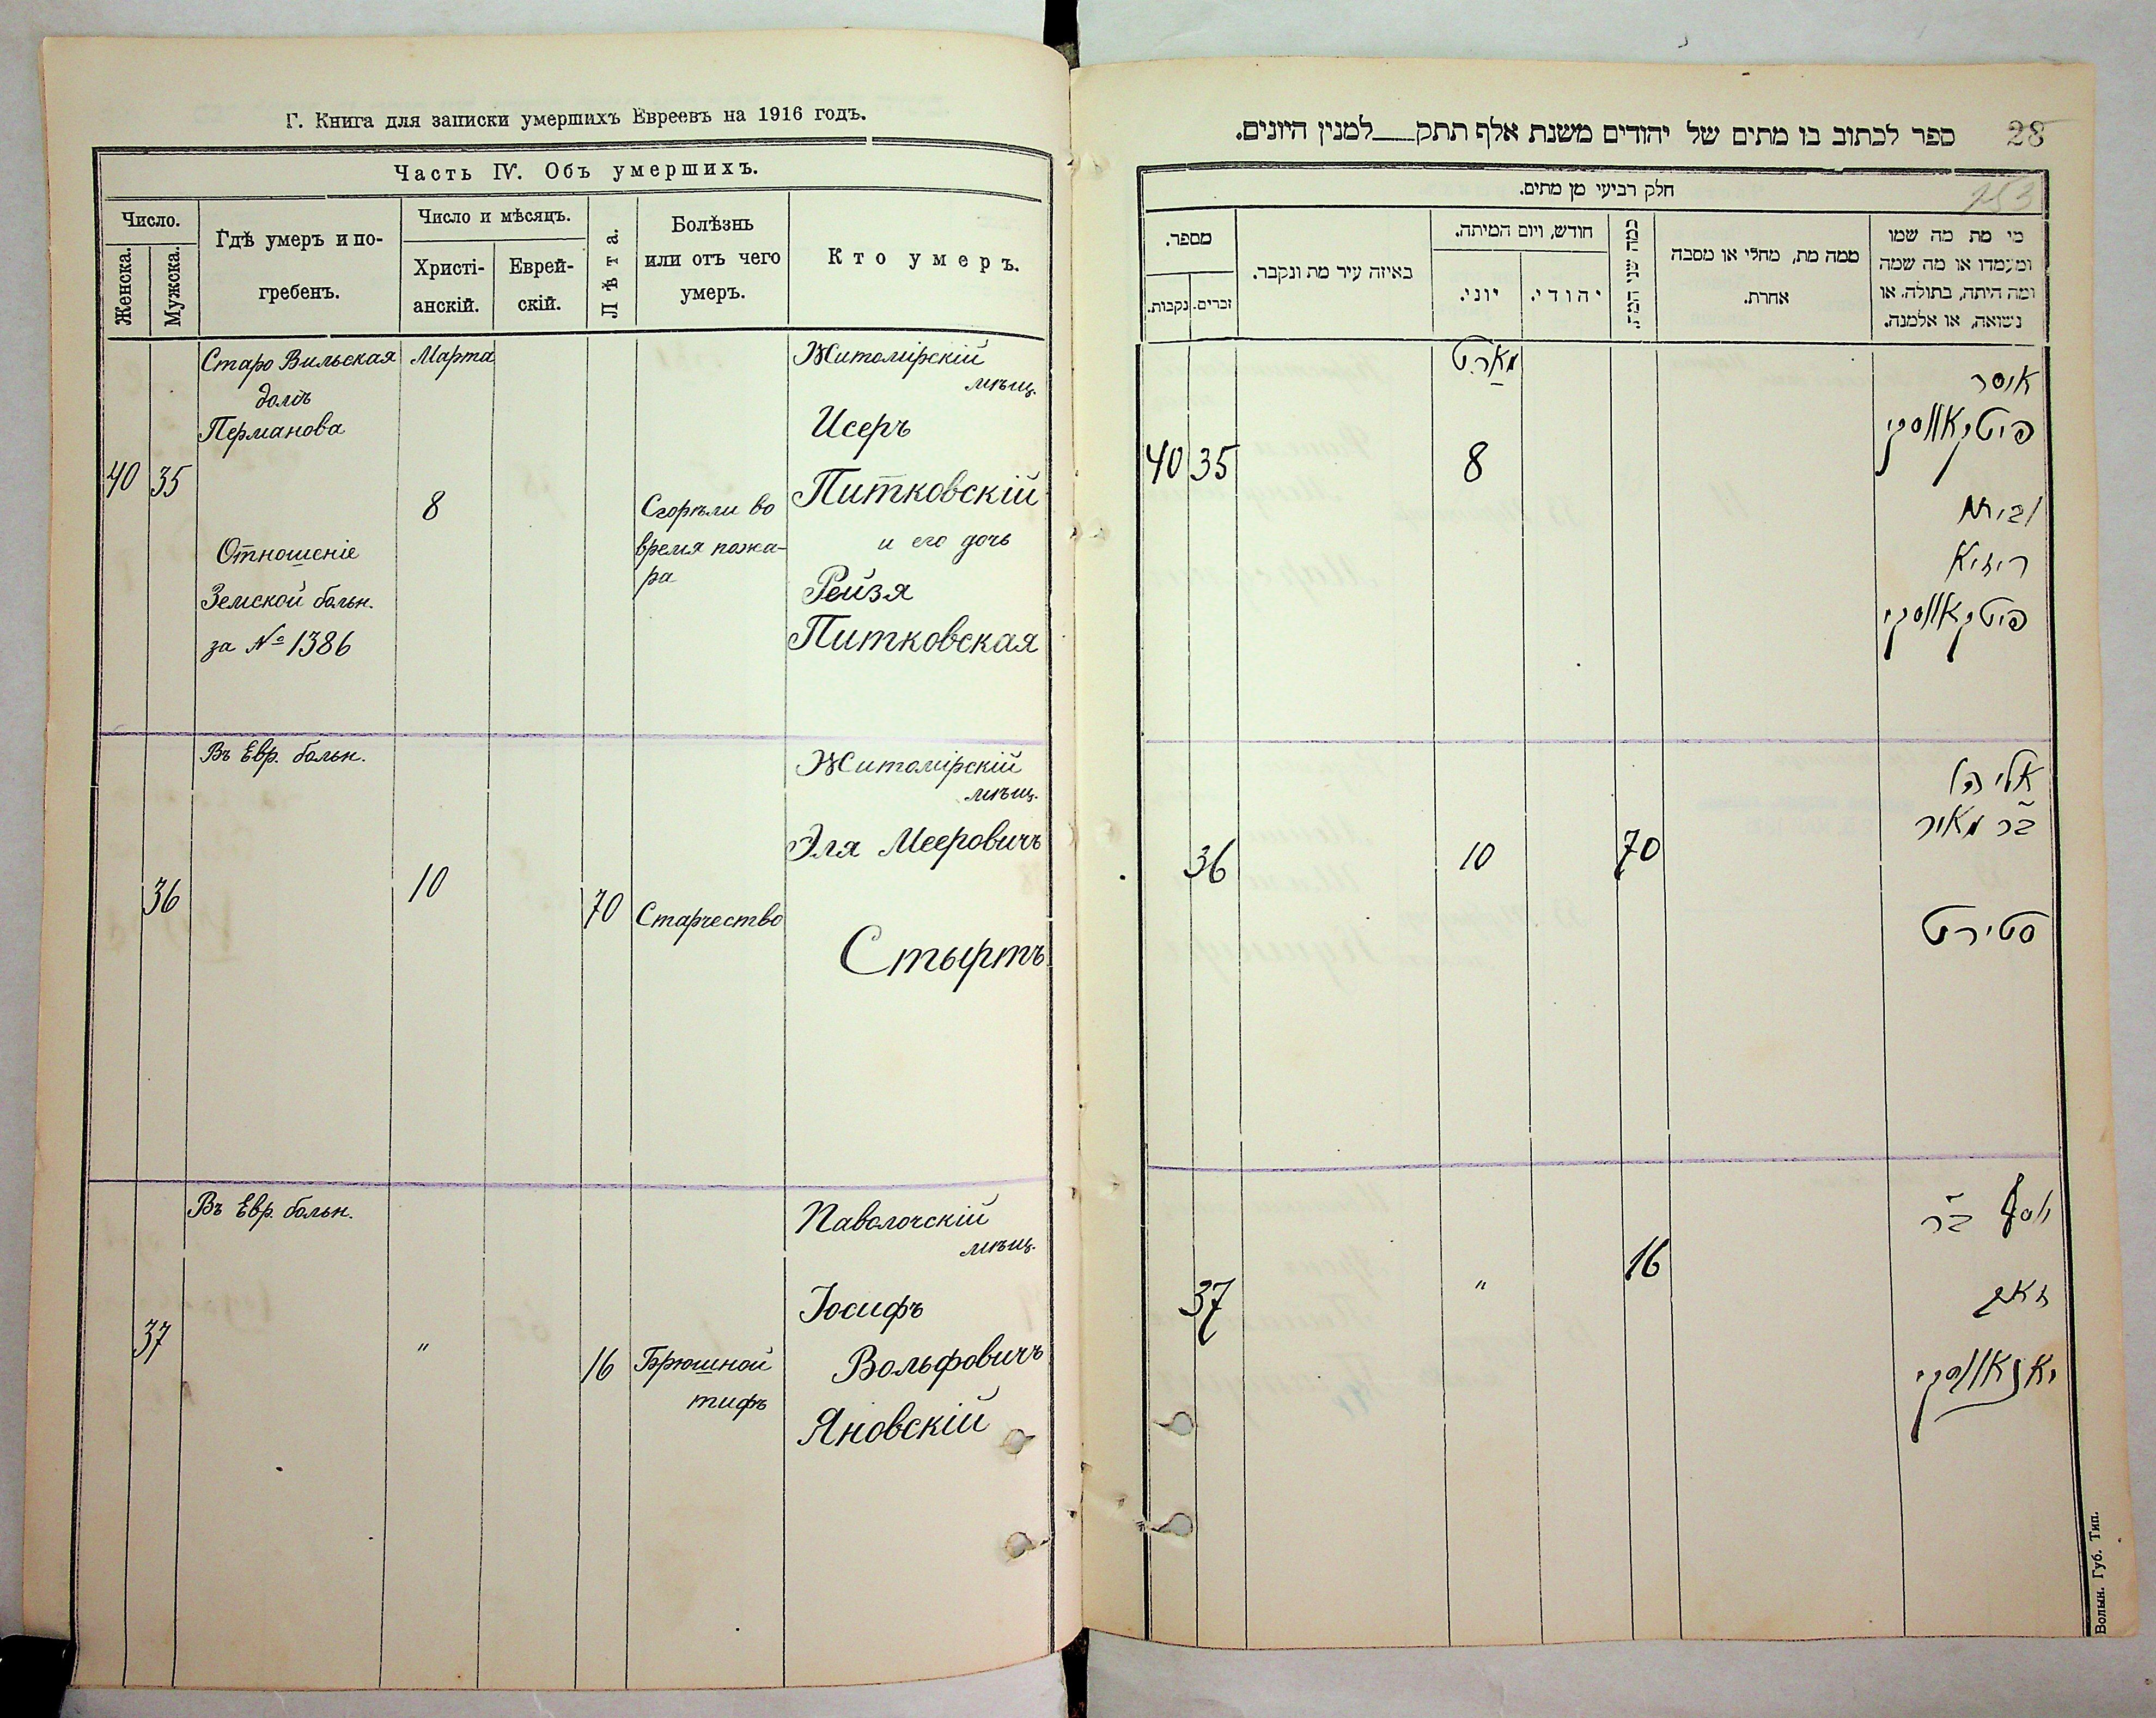 Г. Книга для записки умершихъ Евреевъ на 1916 годъ.
Часть IV. Объ умершихъ.
Число.
Женска.
Мужска.
Гдѣ умеръ и по-
гребенъ.
Число и мѣсяцъ.
Христі-
анскій.
Еврей-
скій.
Лѣта.
Болѣзнь
или отъ чего
умеръ.
Кто умеръ.
40
35
Старо Вильская
домъ
Перманова
Отношеніе
Земской больн.
за № 1386
Марта
8
Сгорѣли во
время пожа-
ра
Житомірскій
мѣщ.
Исеръ
Питковскій
и его дочь
Рейзя
Питковская
36
Въ Евр. больн.
10
70
Старчество
Житомірскій
мѣщ.
Эля Мееровичъ
Стыртъ
37
Въ Евр. больн.
"
16
Брюшной
тифъ
Паволочскій
мѣщ.
Іосифъ
Вольфовичъ
Яновскій
28
ספר לכתוב בו מתים של יהודים משנת אלף תתק__למנין היונים.
153
חלק רביעי מן מתים.
מספר.
זכרים.
נקבות.
באיזה עיר מת ונקבר.
חודש, ויום המיתה.
יוני.
יהודי.
כמה שני המת
ממה מת, מחלי או מסבה
אחרת.
מי מת מה שמו
ומעמדו או מה שמה
ומה היתה, בתולה. או
נשואה, או אלמנה.
40
35
מארט
8
איסר
פיטקאווסקי
ובתו
רייזא
פיטקאווסקי
36
10
70
אליהו
בר מאיר
סטירט
37
"
16
יוסף בר
זאב
יאנאווסקי
Волын. Губ. Тип.